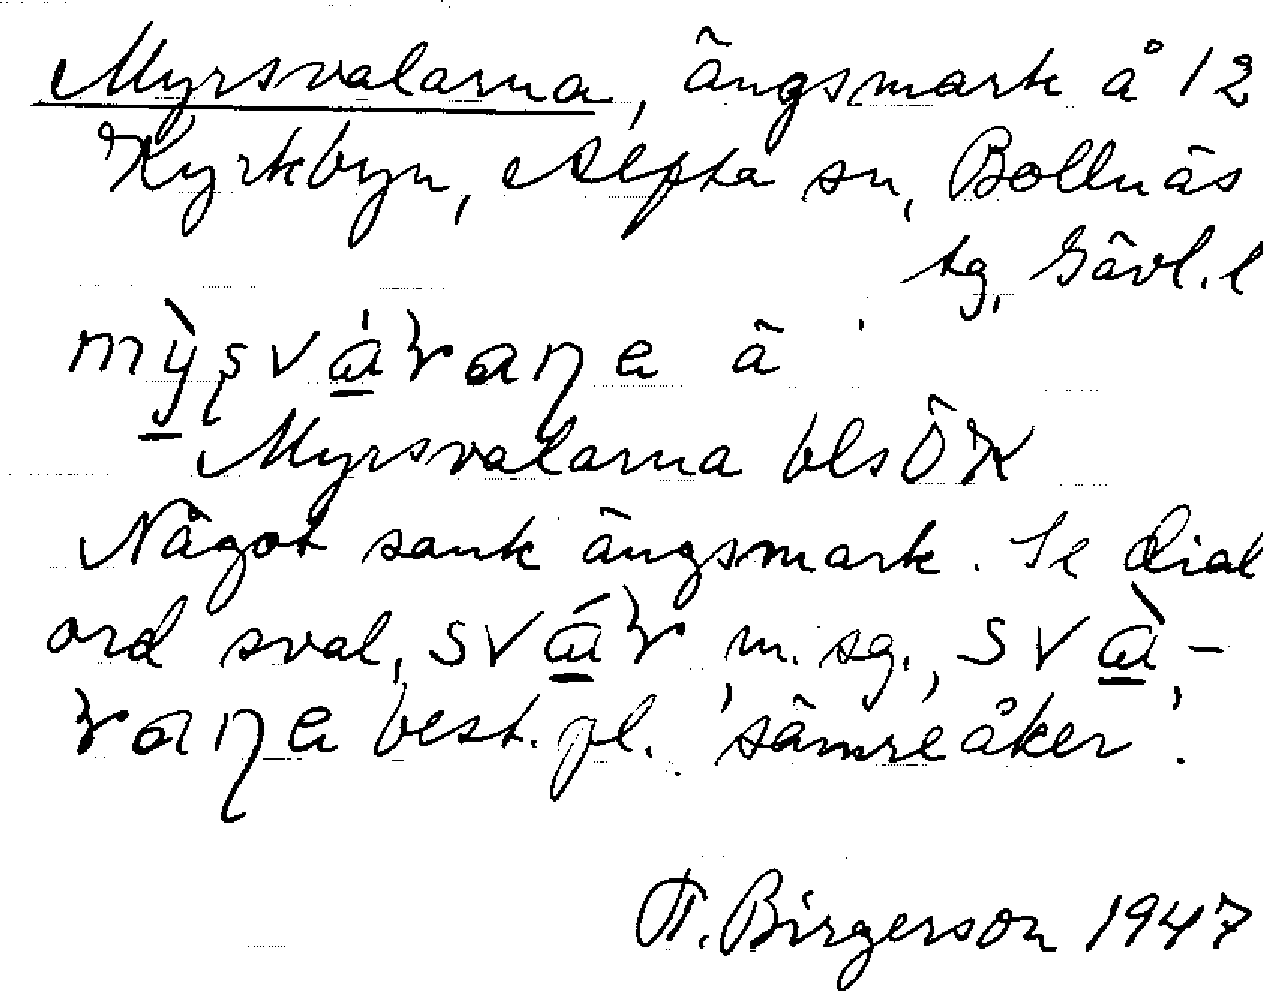 Myrsvalarna, ängsmark å 12
Kyrkbyn, Alfta sn, Bollnäs
tg, Gävl. l
Myrsvalarna bls ÖK
Något sank ängsmark. Se dial
ord sval, m. sg.,
best. pl. 'sämre åker'.
T. Birgerson 1947